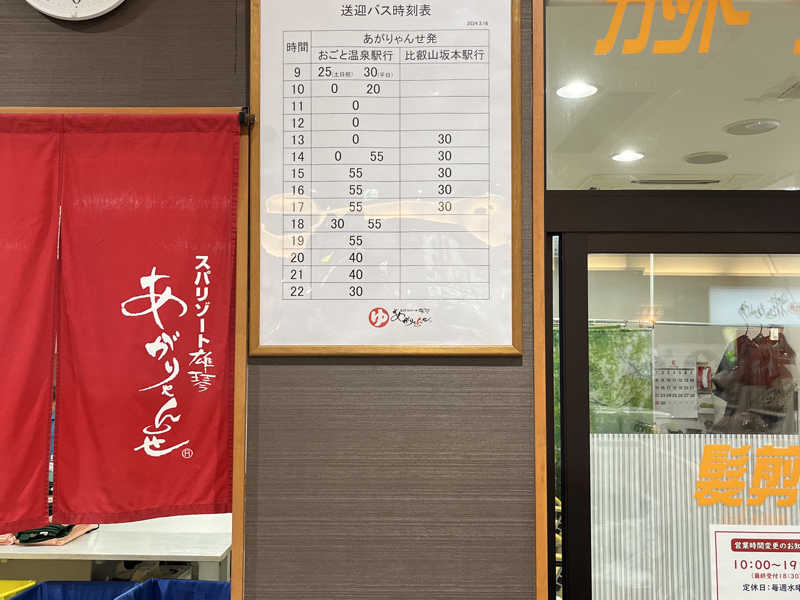 送迎バス時刻表
2024.3.16
時間
あがりゃんせ発
おごと温泉駅行 比叡山坂本駅行
9 25(土日祝) 30(平日)
10 0 20
11 0
12 0
13 0 30
14 0 55 30
15 55 30
16 55 30
17 55 30
18 30 55
19 55
20 40
21 40
22 30
ゆ あがりゃんせ
スパリゾート雄琴
あがりゃんせ®
カット
髪剪
営業時間変更のお知
10:00～19
(最終受付18:30
定休日：毎週水曜